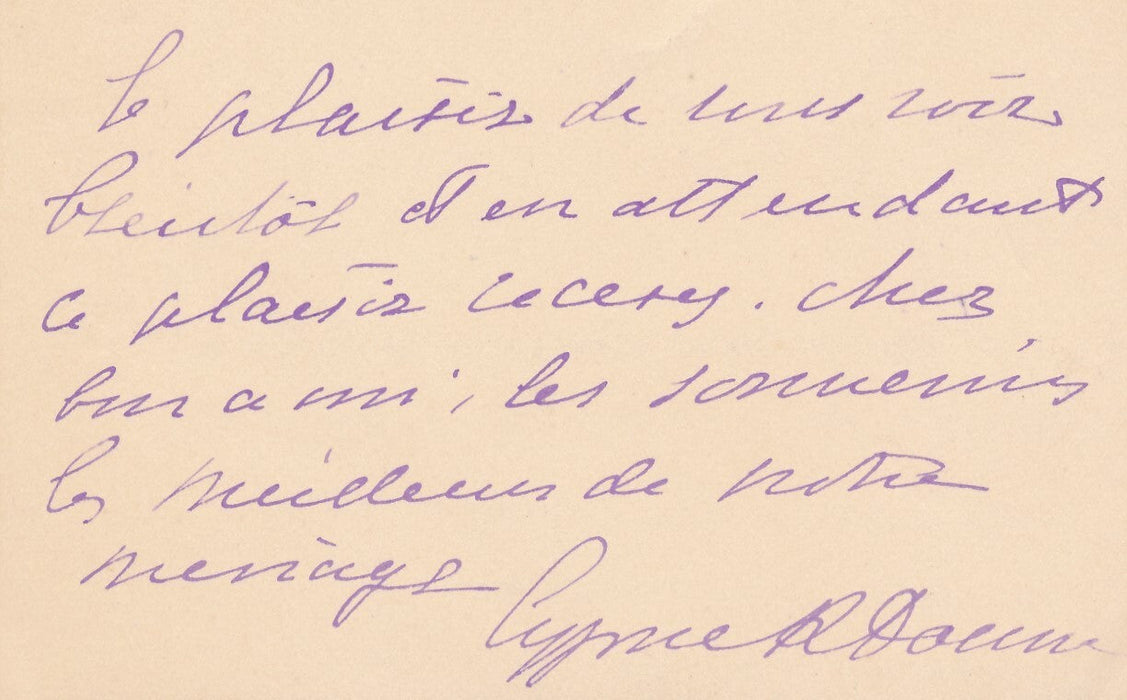 le plaisir de vous voir
bientôt et en attendant
ce plaisir recevez. cher
bon ami, les souvenirs
les meilleurs de notre
menage